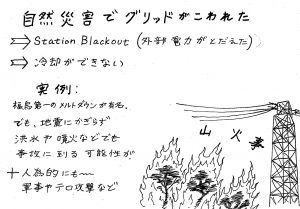 自然災害でグリッドがこわれた
⇒ Station Blackout (外部電力がとだえた)
⇒ 冷却ができない
実例:
福島第一のメルトダウンが有名.
でも、地震にかぎらず
洪水や噴火などでも
事故に到る可能性が
+人為的にも〜
軍事やテロ攻撃など
山火事